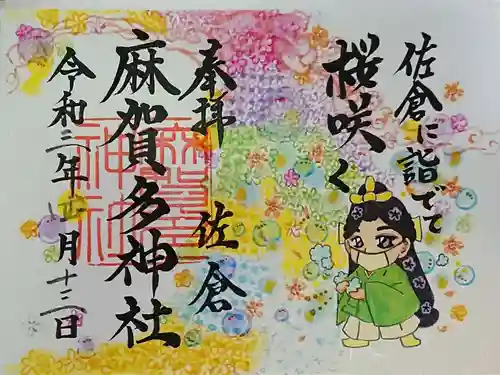 佐倉に詣でて
桜咲く
奉拝 佐倉
麻賀多神社
令和三年四月十三日
麻賀多
神社